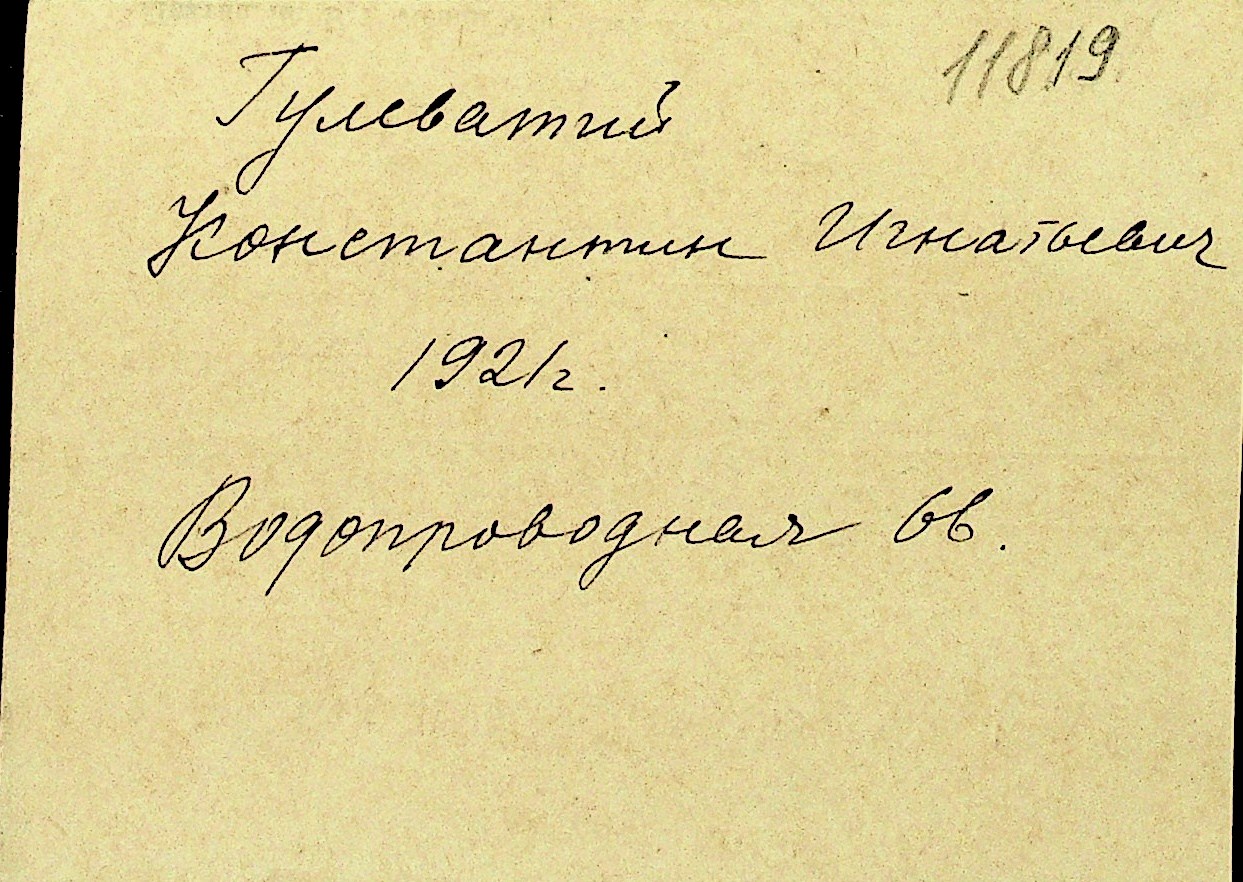 11819
Гулеватий
Константин Игнатьевич
1921г.
Водопроводная 6в.